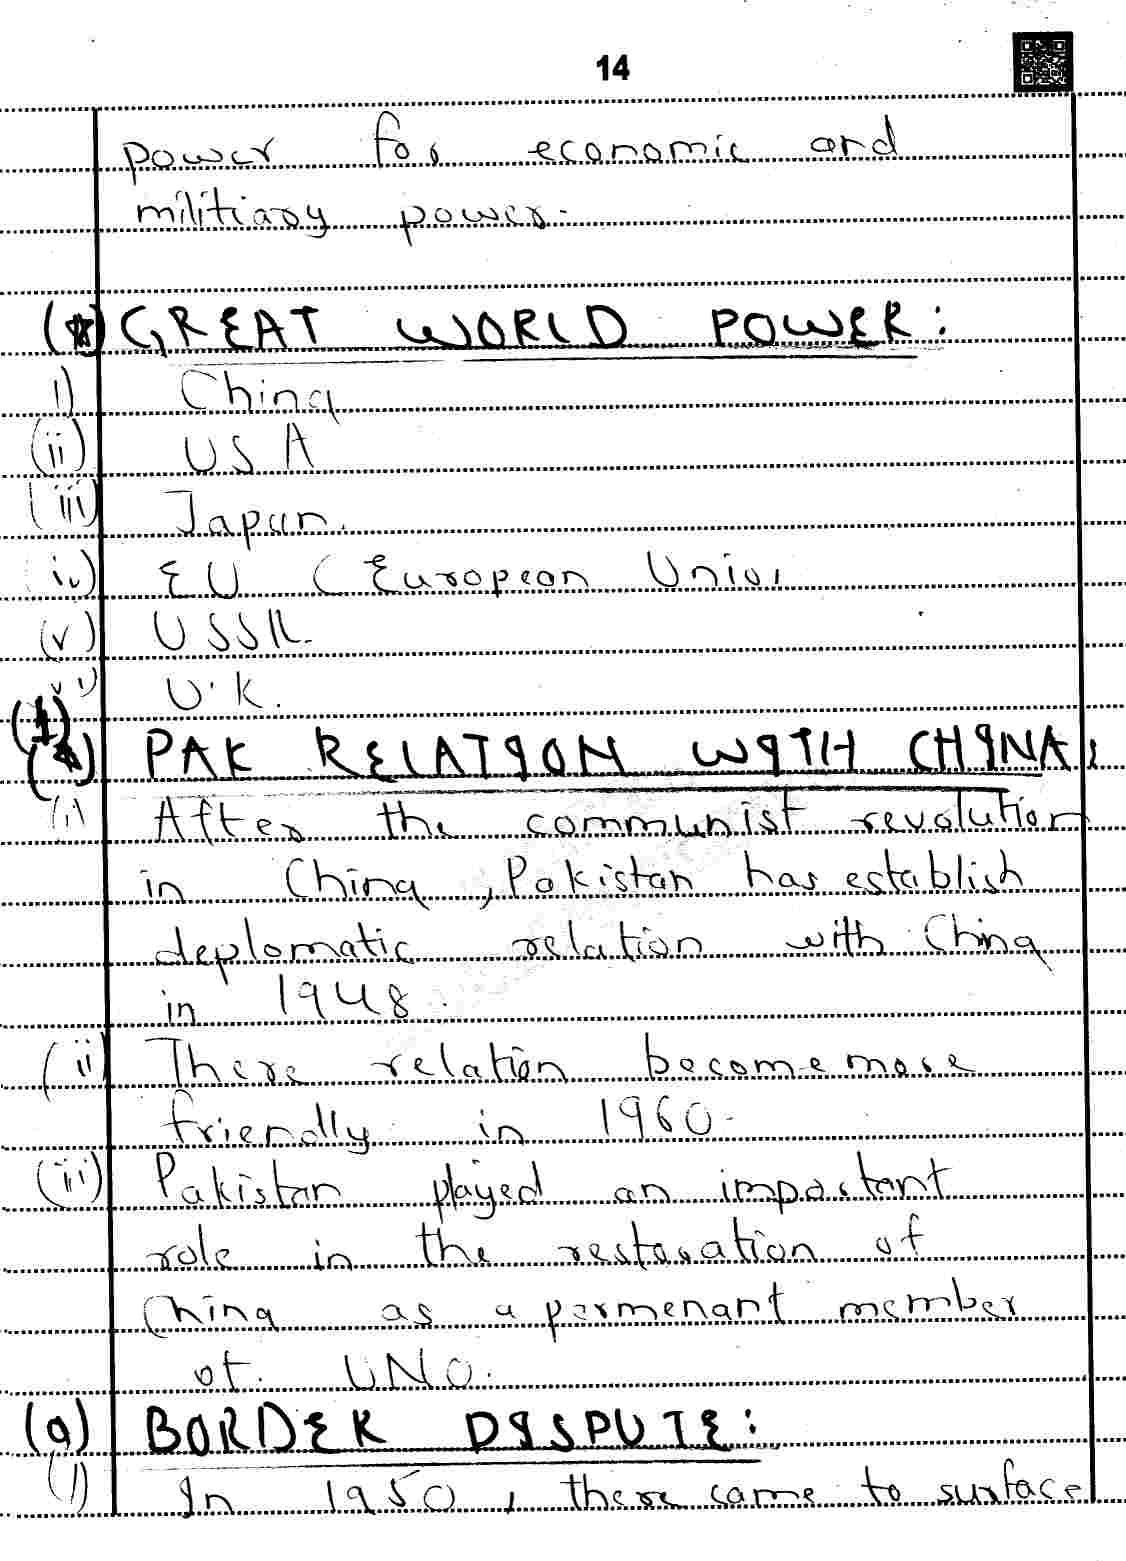 14
power for economic and
militiary power.
(*) GREAT WORLD POWER:
i) China
(ii) USA
(iii) Japan.
iv) EU (European Union
(v) USSR.
vi) U.K.
(1)
(*) PAK RELATION WITH CHINA:
(i) After the communist revolution
in China, Pakistan has establish
deplomatic relation with China
in 1948.
(ii) There relation become more
friendly in 1960.
(iii) Pakistan played an important
role in the restoration of
China as a permenant member
of UNO.
(a) BORDER DISPUTE:
(i) In 1950, there came to surface